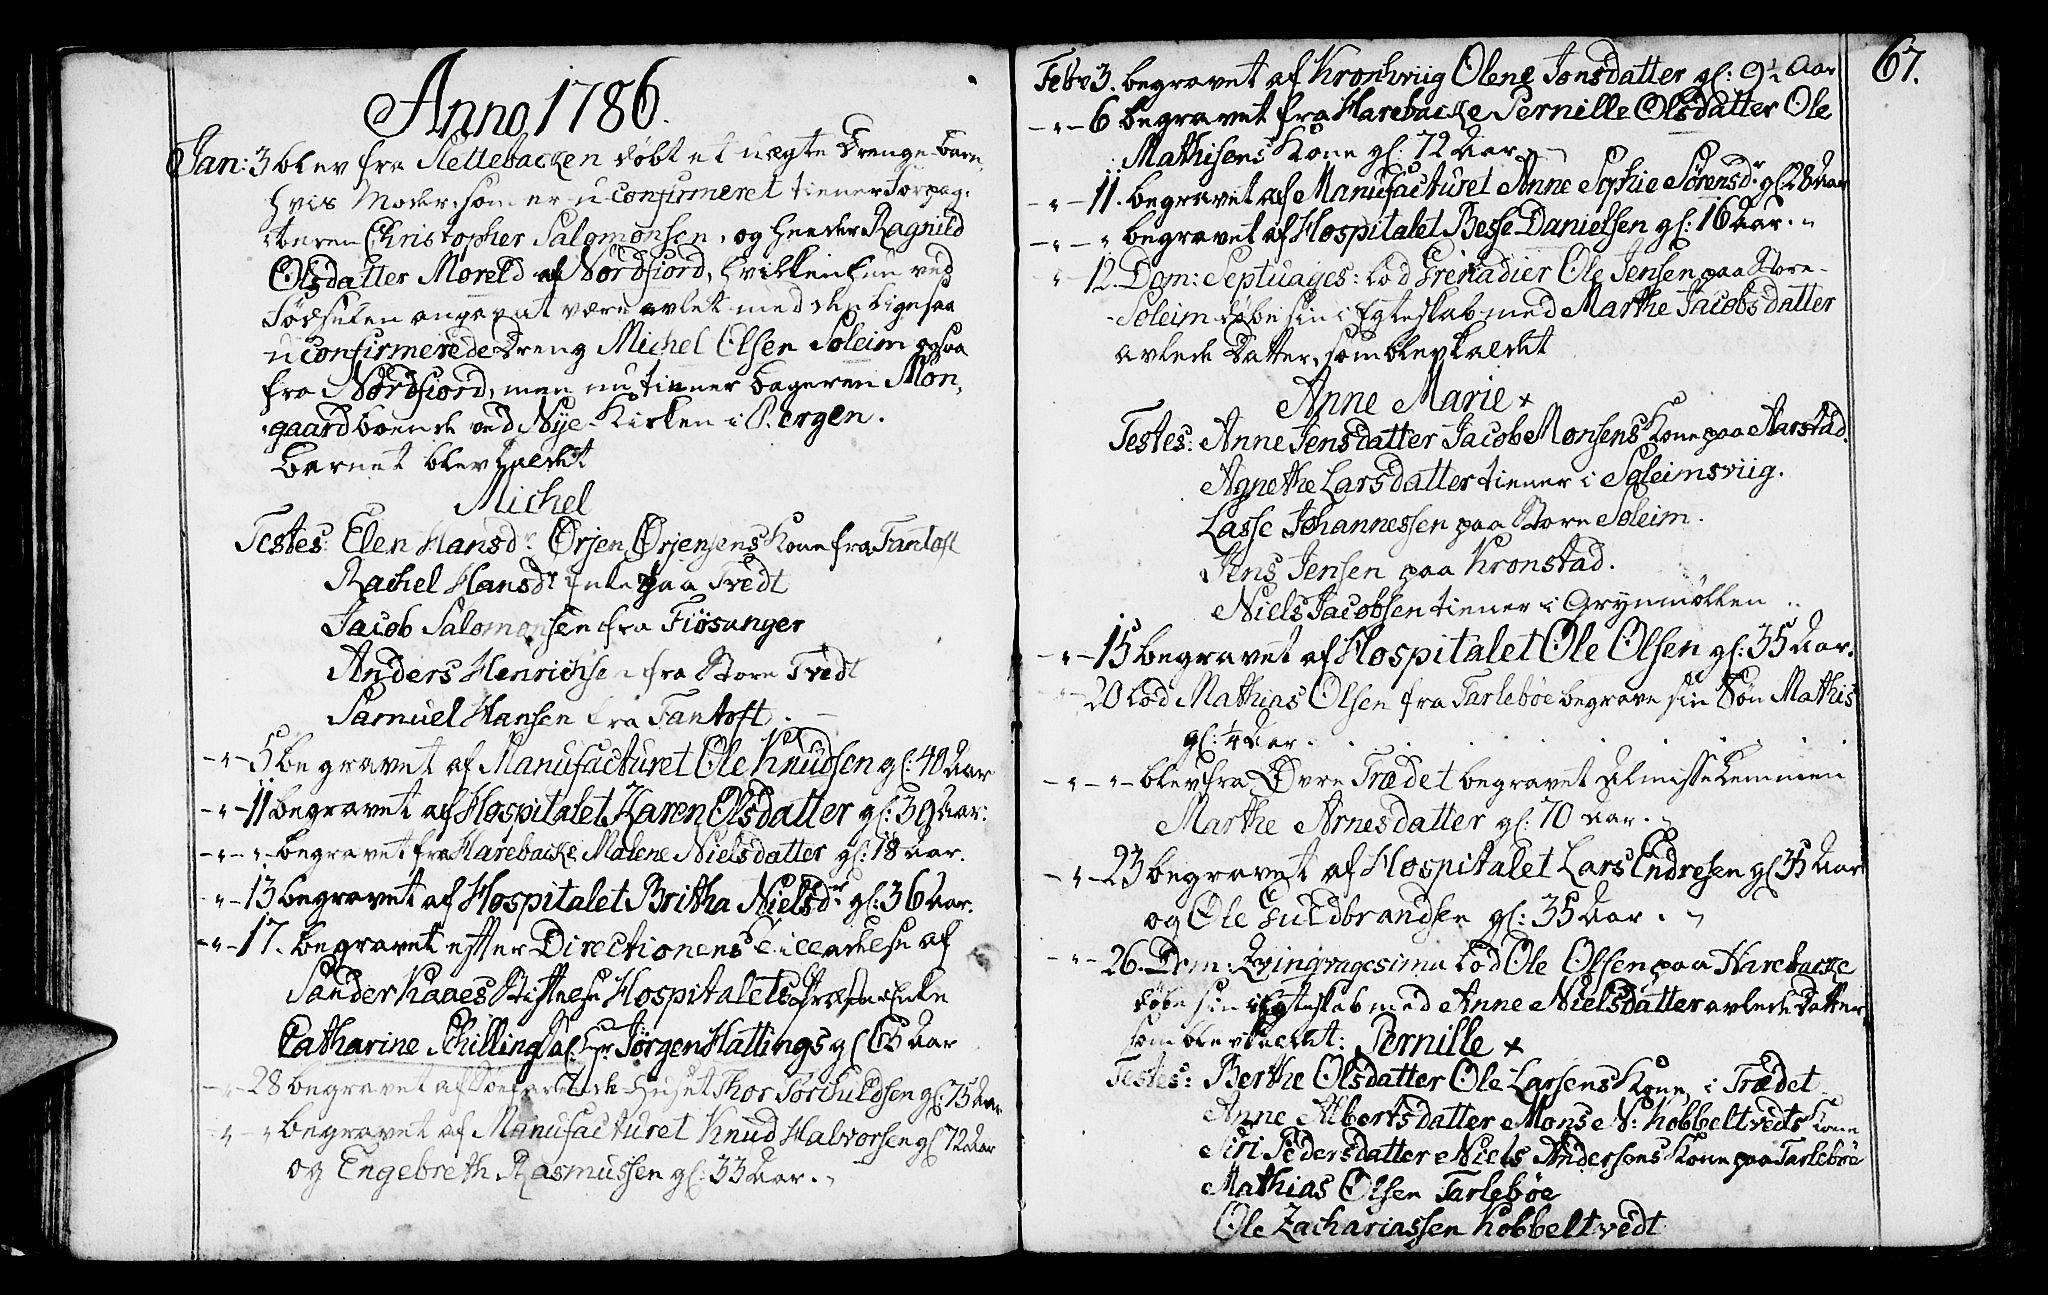 Anno 1786.
Jan: 3 blev fra Slettebacken døbt et uægte Drenge-Barn,
hvis Moder, som er uconfirmeret tiener Forpag-
teren Christopher Salomonsen, og heeder Ragnild
Olsdatter Moreld af Nordfiord, hvilken hun ved
Fødselen angav at være avlet med den ligesaa
uconfirmerede Dreng Michel Olsen Soleim ogsaa
fra Nordfiord, men nu tiener Bageren Mon-
gaard boende ved Nye-Kirken i Bergen.
Barnet blev kaldet
Michel
Testes: Elen Hansdr. Ørjen Ørjensens Kone fra Fantoft
Rachel Hansdr Enke paa Tvedt
Jacob Salomonsen fra Fiøsanger
Anders Henrichsen fra Store Tvedt
Samuel Hansen fra Fantoft.
-"- 5 begravet af Manufacturet Ole Knudsen gl: 40 Aar
-"- 11 begravet af Hospitalet Karen Olsdatter gl: 39 Aar:
-"-"- begravet fra Harebacke Malene Nielsdatter gl: 18 Aar.
-"- 13 begravet af Hospitalet Britha Nielsdr gl: 36 Aar.
-"- 17. begravet efter Directionens Tilladelse af
Sander Kaaes Stiftelse Hospitalets Enke
Catharine Schilling Sal: Jørgen Hattings gl 63 Aar
-"- 28 begravet af Søefarende-Huset Thor Torchildsen gl: 75 Aar
-"-" begravet af Manufacturet Knud Halvorsen gl 72 Aar
og Engebreth Rasmussen gl: 33 Aar.
67.
Febr 3. begravet af Kronhviig Olene Jonsdatter gl: 9½ Aar
-"- 6 begravet fra Harebacke Pernille Olsdatter Ole
Mathisens Kone gl: 72 Aar.
-"- 11. begravet af Manufacturet Anne Sophie Sørensdr gl 28 Aar
-"-" begravet af Hospitalet Besse Danielsen gl: 16 Aar.
-"- 12. Dom: Septuages: lod Grenadier Ole Jensen paa Store-
Soleim døbe sin i Egteskab med Marthe Jacobsdatter
avlede Datter, som blev kaldet
Anne Marie x
Testes: Anne Jensdatter Jacob Monsens Kone paa Aarstad.
Agnethe Larsdatter tiener i Soleimsviig.
Lasse Johannessen paa Store Soleim.
Jens Jensen paa Kronstad.
Niels Jacobsen tiener i Grynmøllen
-"- 15 begravet af Hospitalet Ole Olsen gl: 35 Aar.
-"- 20 lod Mathias Olsen fra Tarlebøe begrave sin Søn Mathis
gl: ¼ Aar.
-"-"- blev fra Øvre Trædet begravet Almisse Lemmen
Marthe Arnesdatter gl: 70 Aar.
-"- 23 begravet af Hospitalet Lars Endresen gl 35 Aar
og Ole Guldbrandsen gl: 35 Aar.
-"- 26. Dom: Qvinqvagesima lod Ole Olsen paa Harebacke
døbe sin i Egteskab med Anne Nielsdatter avlede Datter,
som blev kaldet: Pernille x
Testes: Berthe Olsdatter Ole Larsens Kone i Trædet
Anne Albertsdatter Mons N: Kobbeltvedts Kone
Siri Pedersdatter Niels Andersens Kone paa Tarlebøe
Mathias Olsen Tarlebøe
Ole Zachariassen Kobbeltvedt